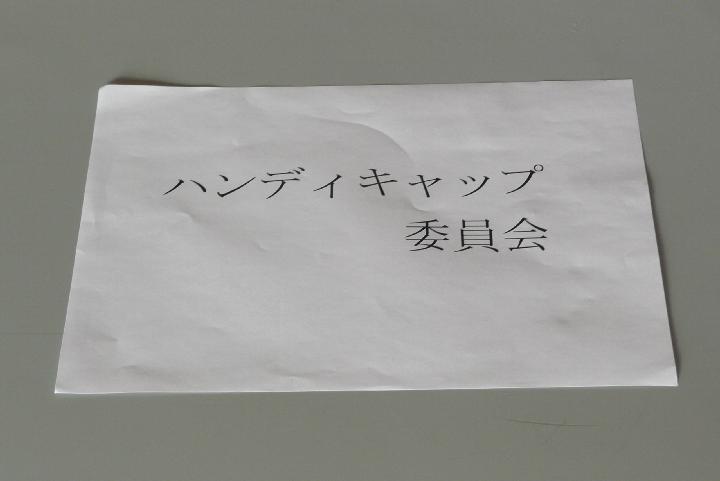 ハンディキャップ
委員会